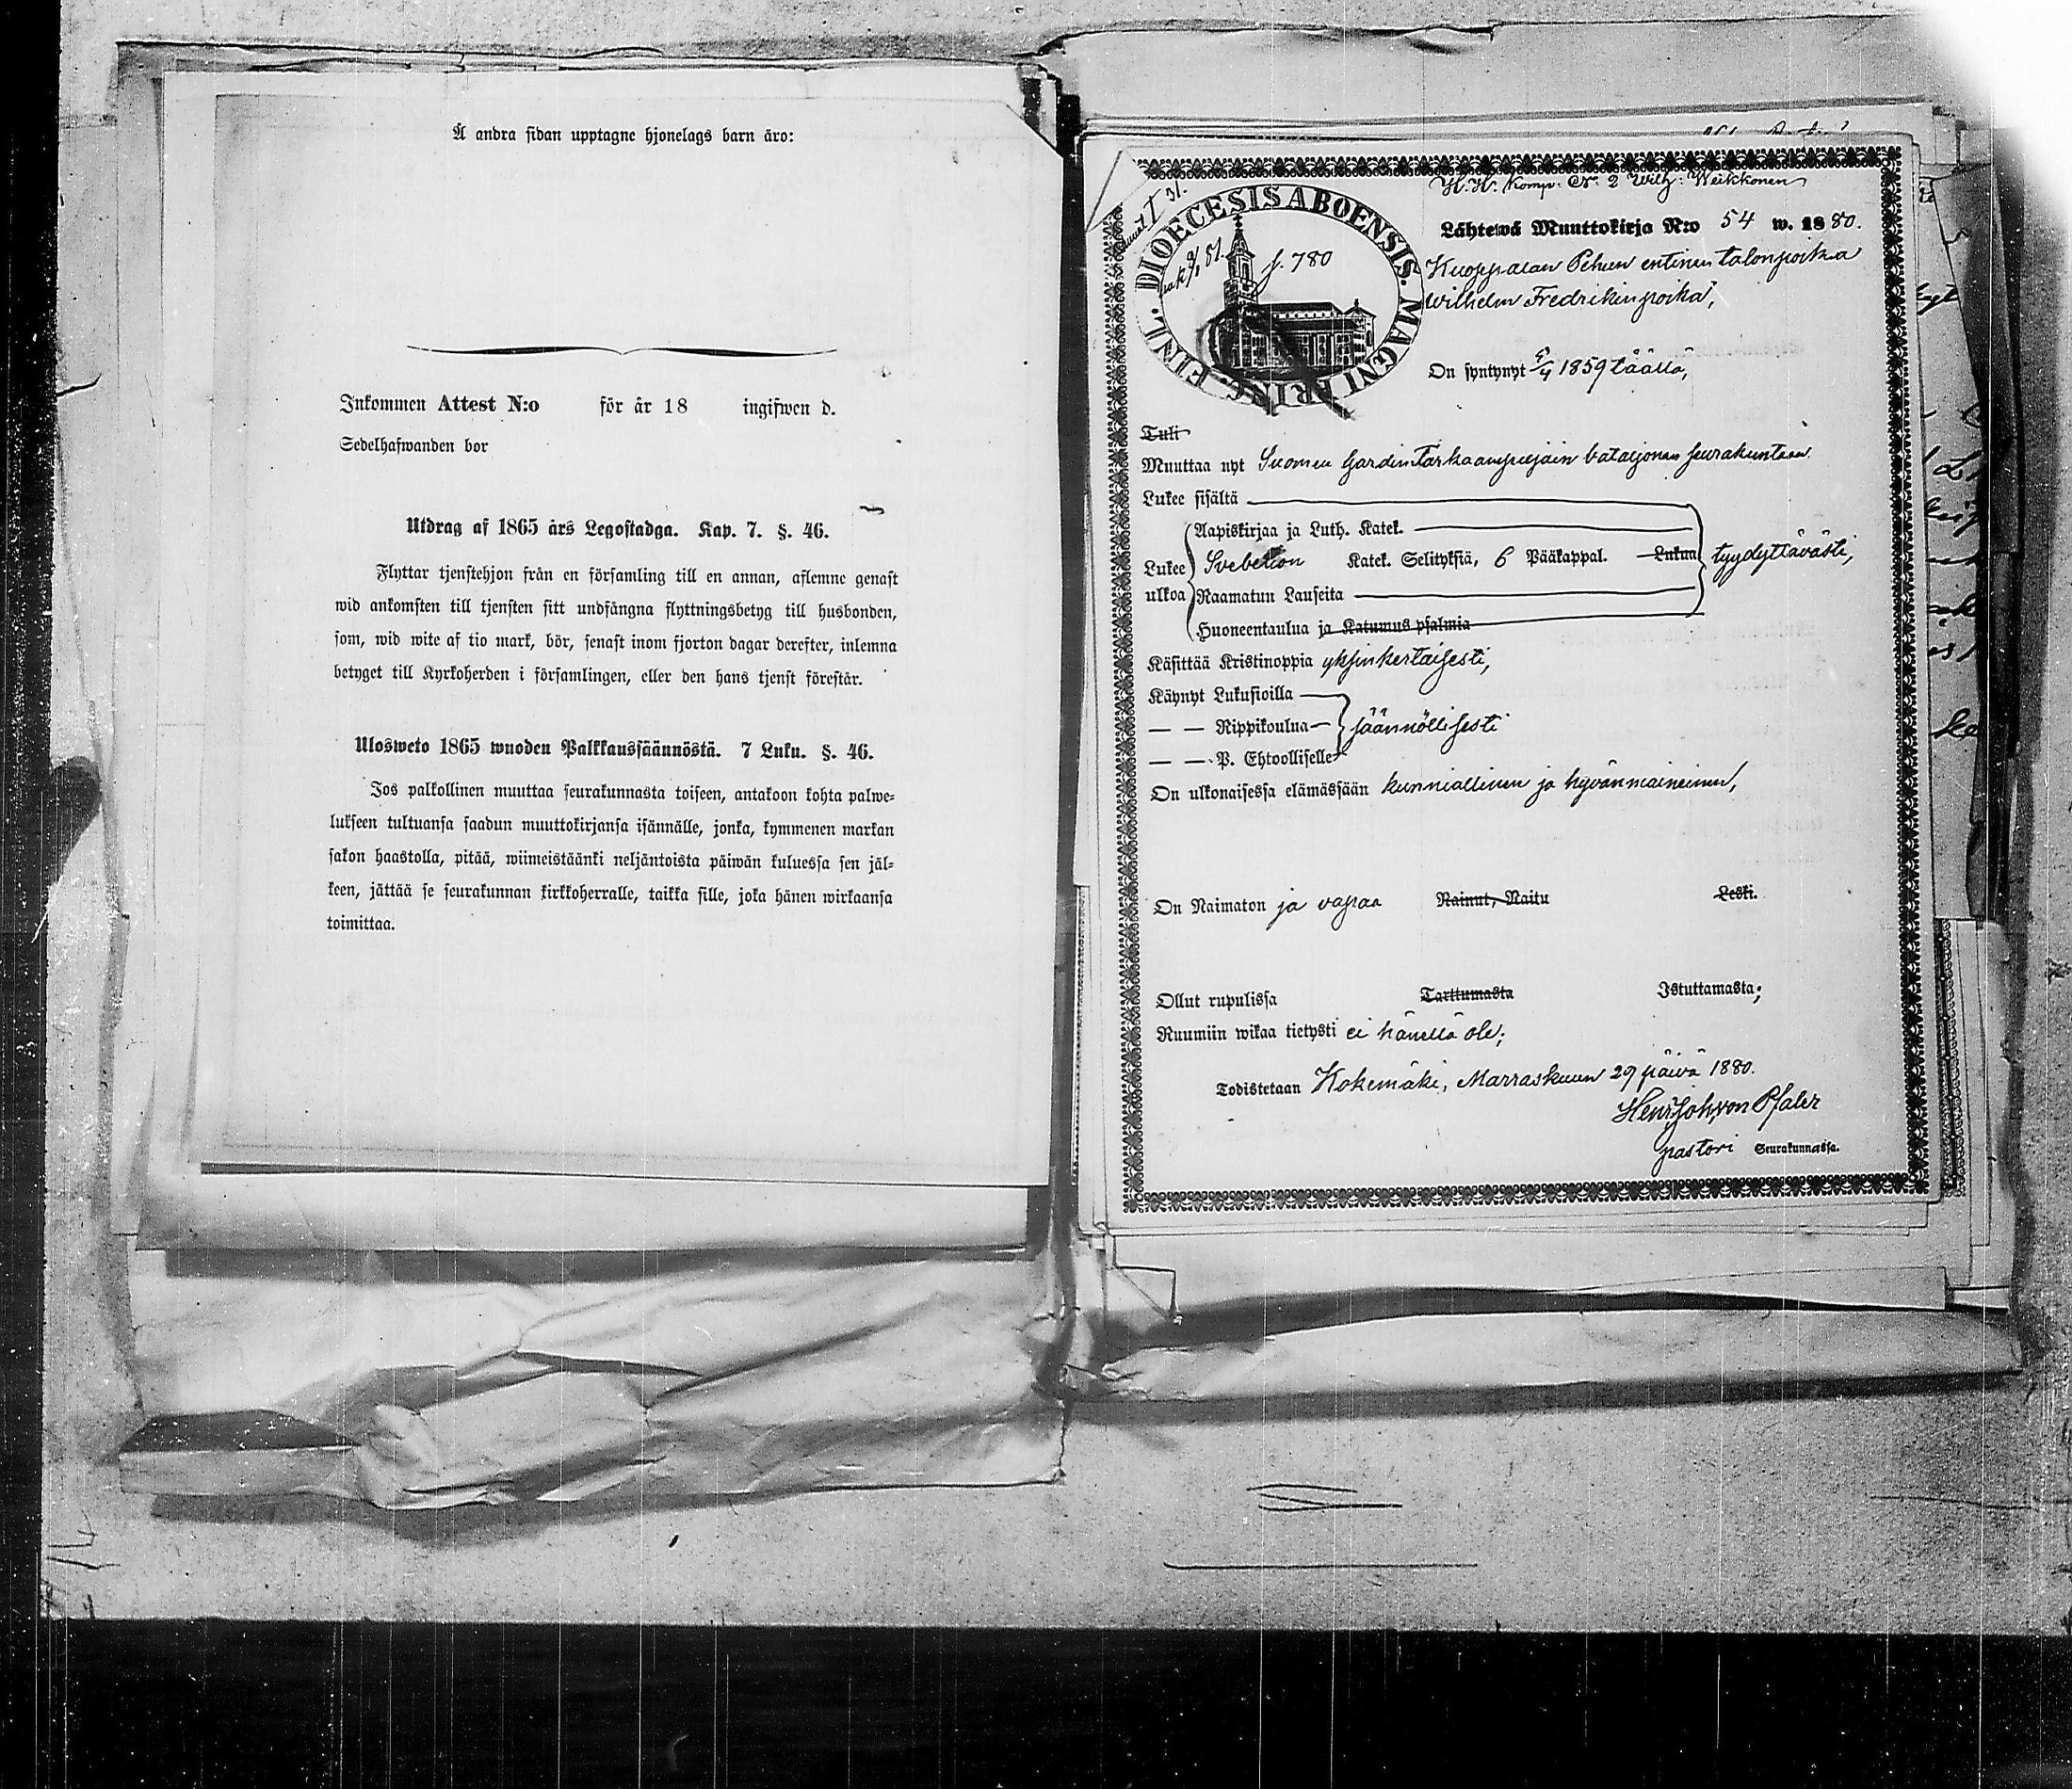 Å andra sidan upptagne hjonelags barn äro:
Inkommen Attest N:o för år 18 ingifwen d.
Sedelhafwanden bor
Utdrag af 1865 års Legostadga. Kap. 7. §. 46.
Flyttar tjenstehjon från en församling till en annan, aflemne genast
wid ankomsten till tjensten sitt undfångna flyttningsbetyg till husbonden,
som, wid wite af tio mark, bör, senast inom fjorton dagar derefter, inlemna
betyget till Kyrkoherden i församlingen, eller den hans tjenst förestår.
Ulosweto 1865 wuoden Palkkaussäännöstä. 7 Luku. §. 46.
Jos palkollinen muuttaa seurakunnasta toiseen, antakoon kohta palwe-
lukseen tultuansa saadun muuttokirjansa isännälle, jonka, kymmenen markan
sakon haastolla, pitää, wiimeistäänki neljäntoista päiwän kuluessa sen jäl-
keen, jättää se seurakunnan kirkkoherralle, taikka sille, joka hänen wirkaansa
toimittaa.
H. H. Komp. N. 2 Wilh: Weikkonen
DIOECESIS ABOENSIS. MAGNI PRINC. FINL.
f. 780
Lähtewä Muuttokirja N:o 54 w. 1880.
Kuoppalan Pehun entinen talonpoika
Wilhelm Fredrikinpoika,
On syntynyt 5/4 1859 täällä,
Tuli
Muuttaa nyt Suomen Gardin Tarkkampujain bataljonan seurakuntaan
Lukee sisältä
Aapiskirjaa ja Luth. Katek.
Lukee ulkoa Svebelion Katek. Selityksiä, 6 Pääkappal. Lukua tyydyttävästi,
Raamatun Lauseita
Huoneentaulua ja Katumus psalmia
Käsittää Kristinoppia yksinkertaisesti,
Käynyt Lukusioilla
— — Rippikoulua säännöllisesti
— — P. Ehtoolliselle
On ulkonaisessa elämässään kunniallinen ja hyvänmaineinen,
On Naimaton ja vapaa Nainut, Naitu Leski.
Ollut rupulissa Tarttumasta Istuttamasta;
Ruumiin wikaa tietysti ei hänellä ole;
Todistetaan Kokemäki, Marraskuun 29 päivä 1880.
Henr. Joh. von Pfaler
pastori Seurakunnassa.